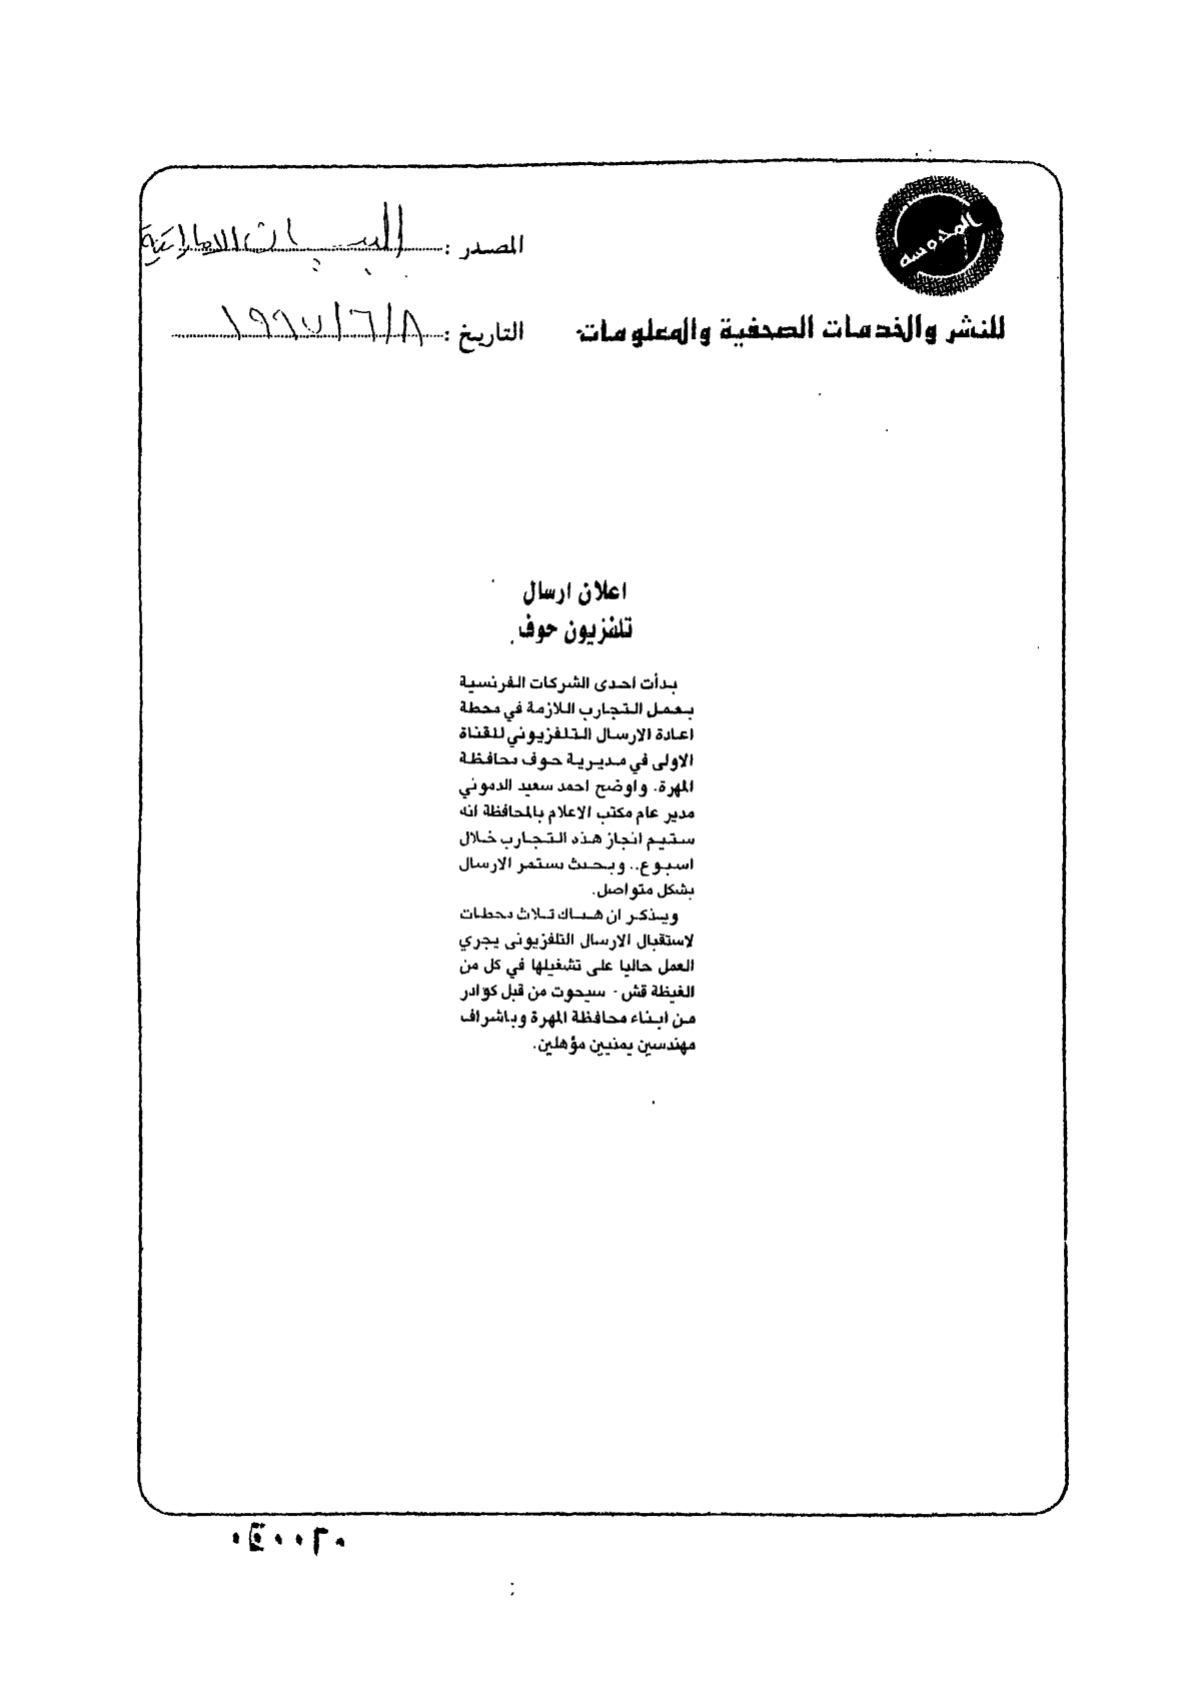 المصدر : البيان الاماراتية
للنشر والخدمات الصحفية والمعلومات
التاريخ : ١٩٩٧/٦/٨
اعلان ارسال
تلفزيون حوف
بدأت احدى الشركات الفرنسية
بعمل التجارب اللازمة في محطة
اعادة الارسال التلفزيوني للقناة
الاولى في مديرية حوف بحافظة
المهرة. واوضح احمد سعيد الدموني
مدير عام مكتب الاعلام بالمحافظة انه
ستيم انجاز هذه التجارب خلال
اسبوع.. وبحث يستمر الارسال
بشكل متواصل.
ويذكر ان هناك ثلاث محطات
لاستقبال الارسال التلفزيونى يجري
العمل حاليا على تشغيلها في كل من
الغيظة قش - سيحوت من قبل كوادر
من ابناء محافظة المهرة وباشراف
مهندسين يمنيين مؤهلين.